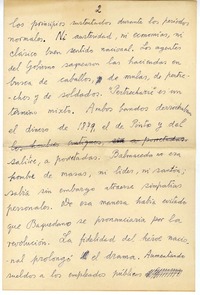 2
los principios sustentados durante los períodos
normales. Ni austeridad, ni economías, ni
clásico buen sentido nacional. Los agentes
del Gobierno saquearon las haciendas en
busca de caballos, de mulas, de
y de soldados. es un
término mixto. Ambos bandos
el dinero de 1879, el de Pinto y del
salitre, a paletadas. Balmaceda no era
hombre de masas, ni líder, ni santón;
sabía sin embargo atraerse simpatías
personales. De esa manera había evitado
que Baquedano se pronunciaría por la
revolución. La fidelidad del héroe nacio-
nal prolongó el drama. Aumentando
sueldos a los empleados públicos